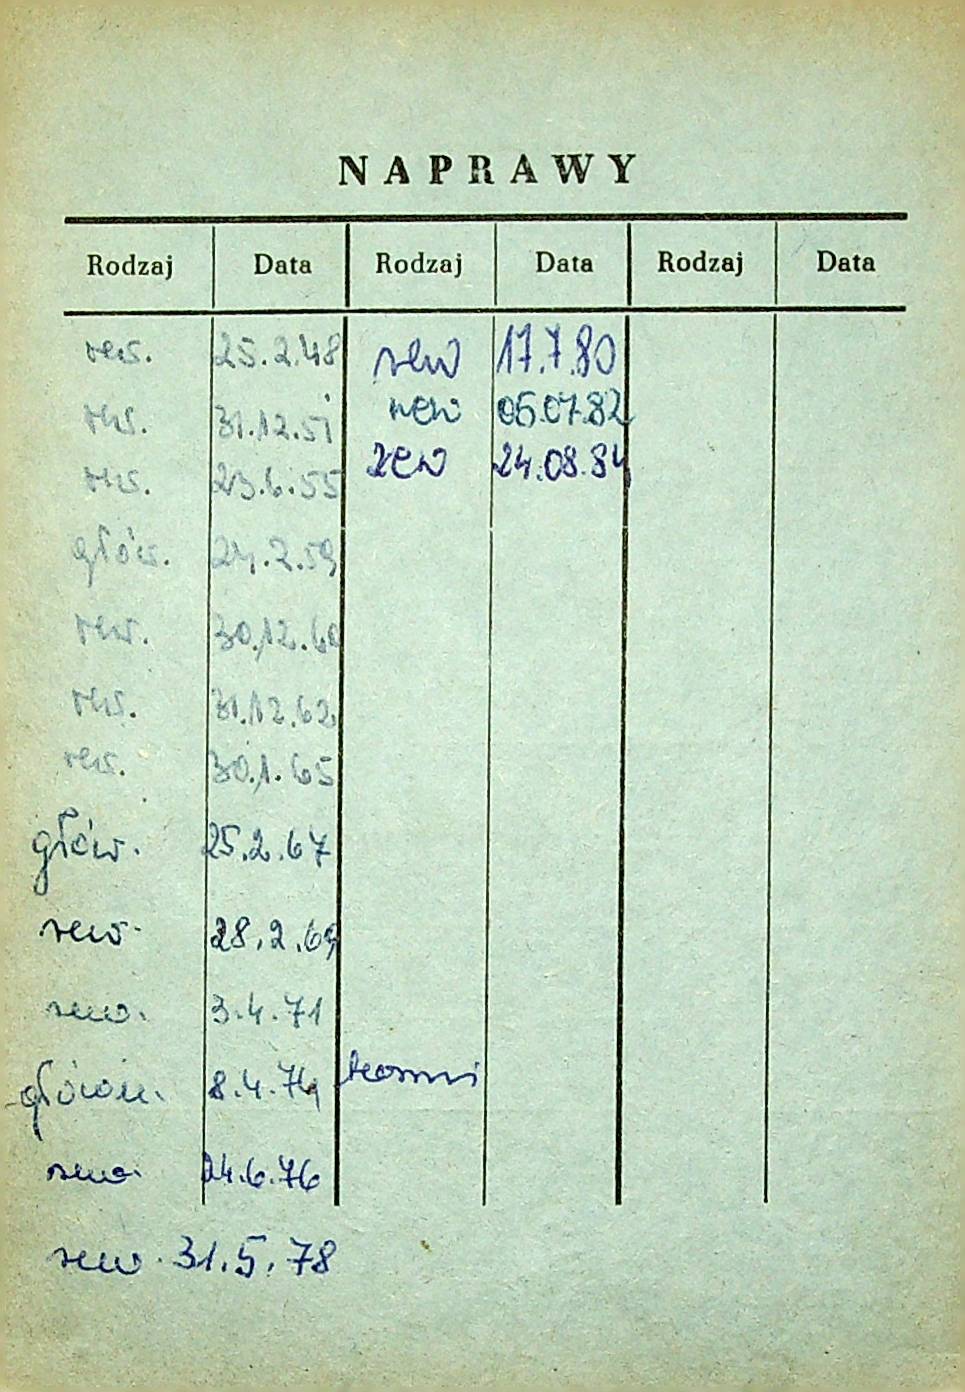 NAPRAWY
Rodzaj Data Rodzaj Data Rodzaj Data
rew. 25.2.48 rew 17.7.80
rew. 31.12.51 rew 06.07.82
rew. 23.6.55 rew 24.08.84
głów. 24.2.59
rew. 30.12.60
rew. 31.12.62
rew. 30.1.65
głów. 25.2.67
rew. 28.2.69
rew. 3.4.71
główn. 8.4.74
rew. 24.6.76
rew. 31.5.78